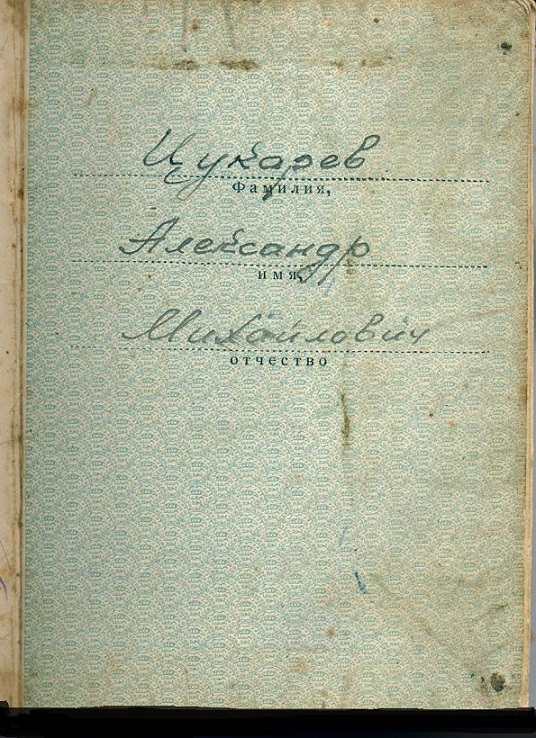 Цукарев
Фамилия,
Александр
имя,
Михайлович
отчество